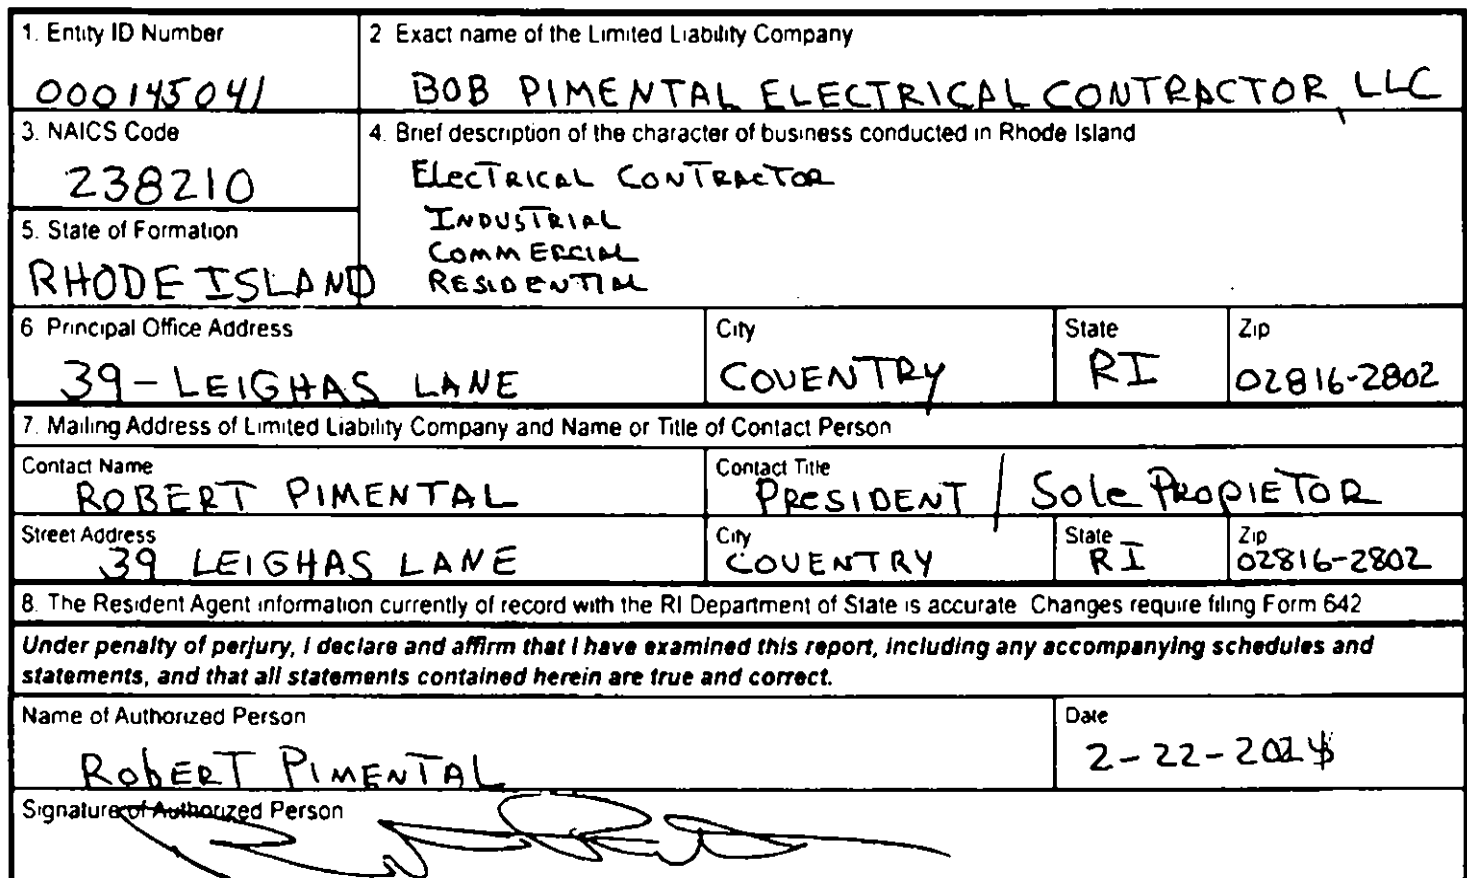 1. Entity ID Number
000145041
2 Exact name of the Limited Liability Company
BOB PIMENTAL ELECTRICAL CONTRACTOR, LLC
3. NAICS Code
238210
4. Brief description of the character of business conducted in Rhode Island
ELECTRICAL CONTRACTOR
INDUSTRIAL
COMMERCIAL
RESIDENTIAL
5. State of Formation
RHODE ISLAND
6 Principal Office Address
39-LEIGHAS LANE
City
COVENTRY
State
RI
Zip
02816-2802
7. Mailing Address of Limited Liability Company and Name or Title of Contact Person
Contact Name
ROBERT PIMENTAL
Contact Title
PRESIDENT / Sole PROPIETOR
Street Address
39 LEIGHAS LANE
City
COVENTRY
State
RI
Zip
02816-2802
8. The Resident Agent information currently of record with the RI Department of State is accurate Changes require filing Form 642
Under penalty of perjury, I declare and affirm that I have examined this report, including any accompanying schedules and
statements, and that all statements contained herein are true and correct.
Name of Authorized Person
ROBERT PIMENTAL
Date
2-22-2024
Signature of Authorized Person